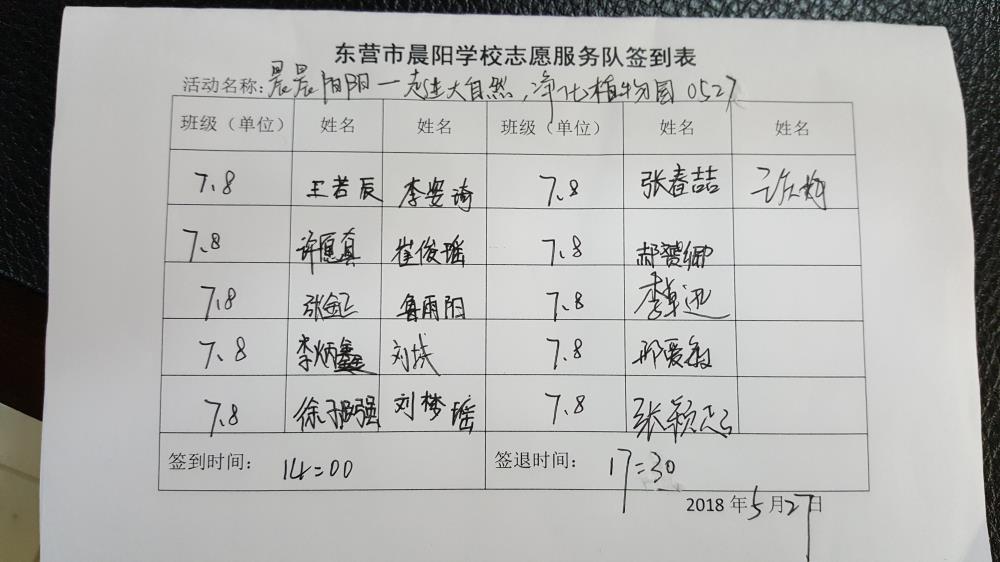 东营市晨阳学校志愿服务队签到表
活动名称:晨晨阳阳一起走大自然,净化植物园0527
班级(单位) 姓名 姓名 班级(单位) 姓名 姓名
7、8 王若辰 李安琦 7、8 张春喆
7、8 许愿真 崔俊瑶 7、8
7、8 鲁雨阳 7、8 李卓迅
7、8 李炳鑫 刘 7、8 邢爱敏
7、8 徐子强 刘梦瑶 7、8 张颖志
签到时间: 14:00 签退时间: 17:30
2018年5月27日